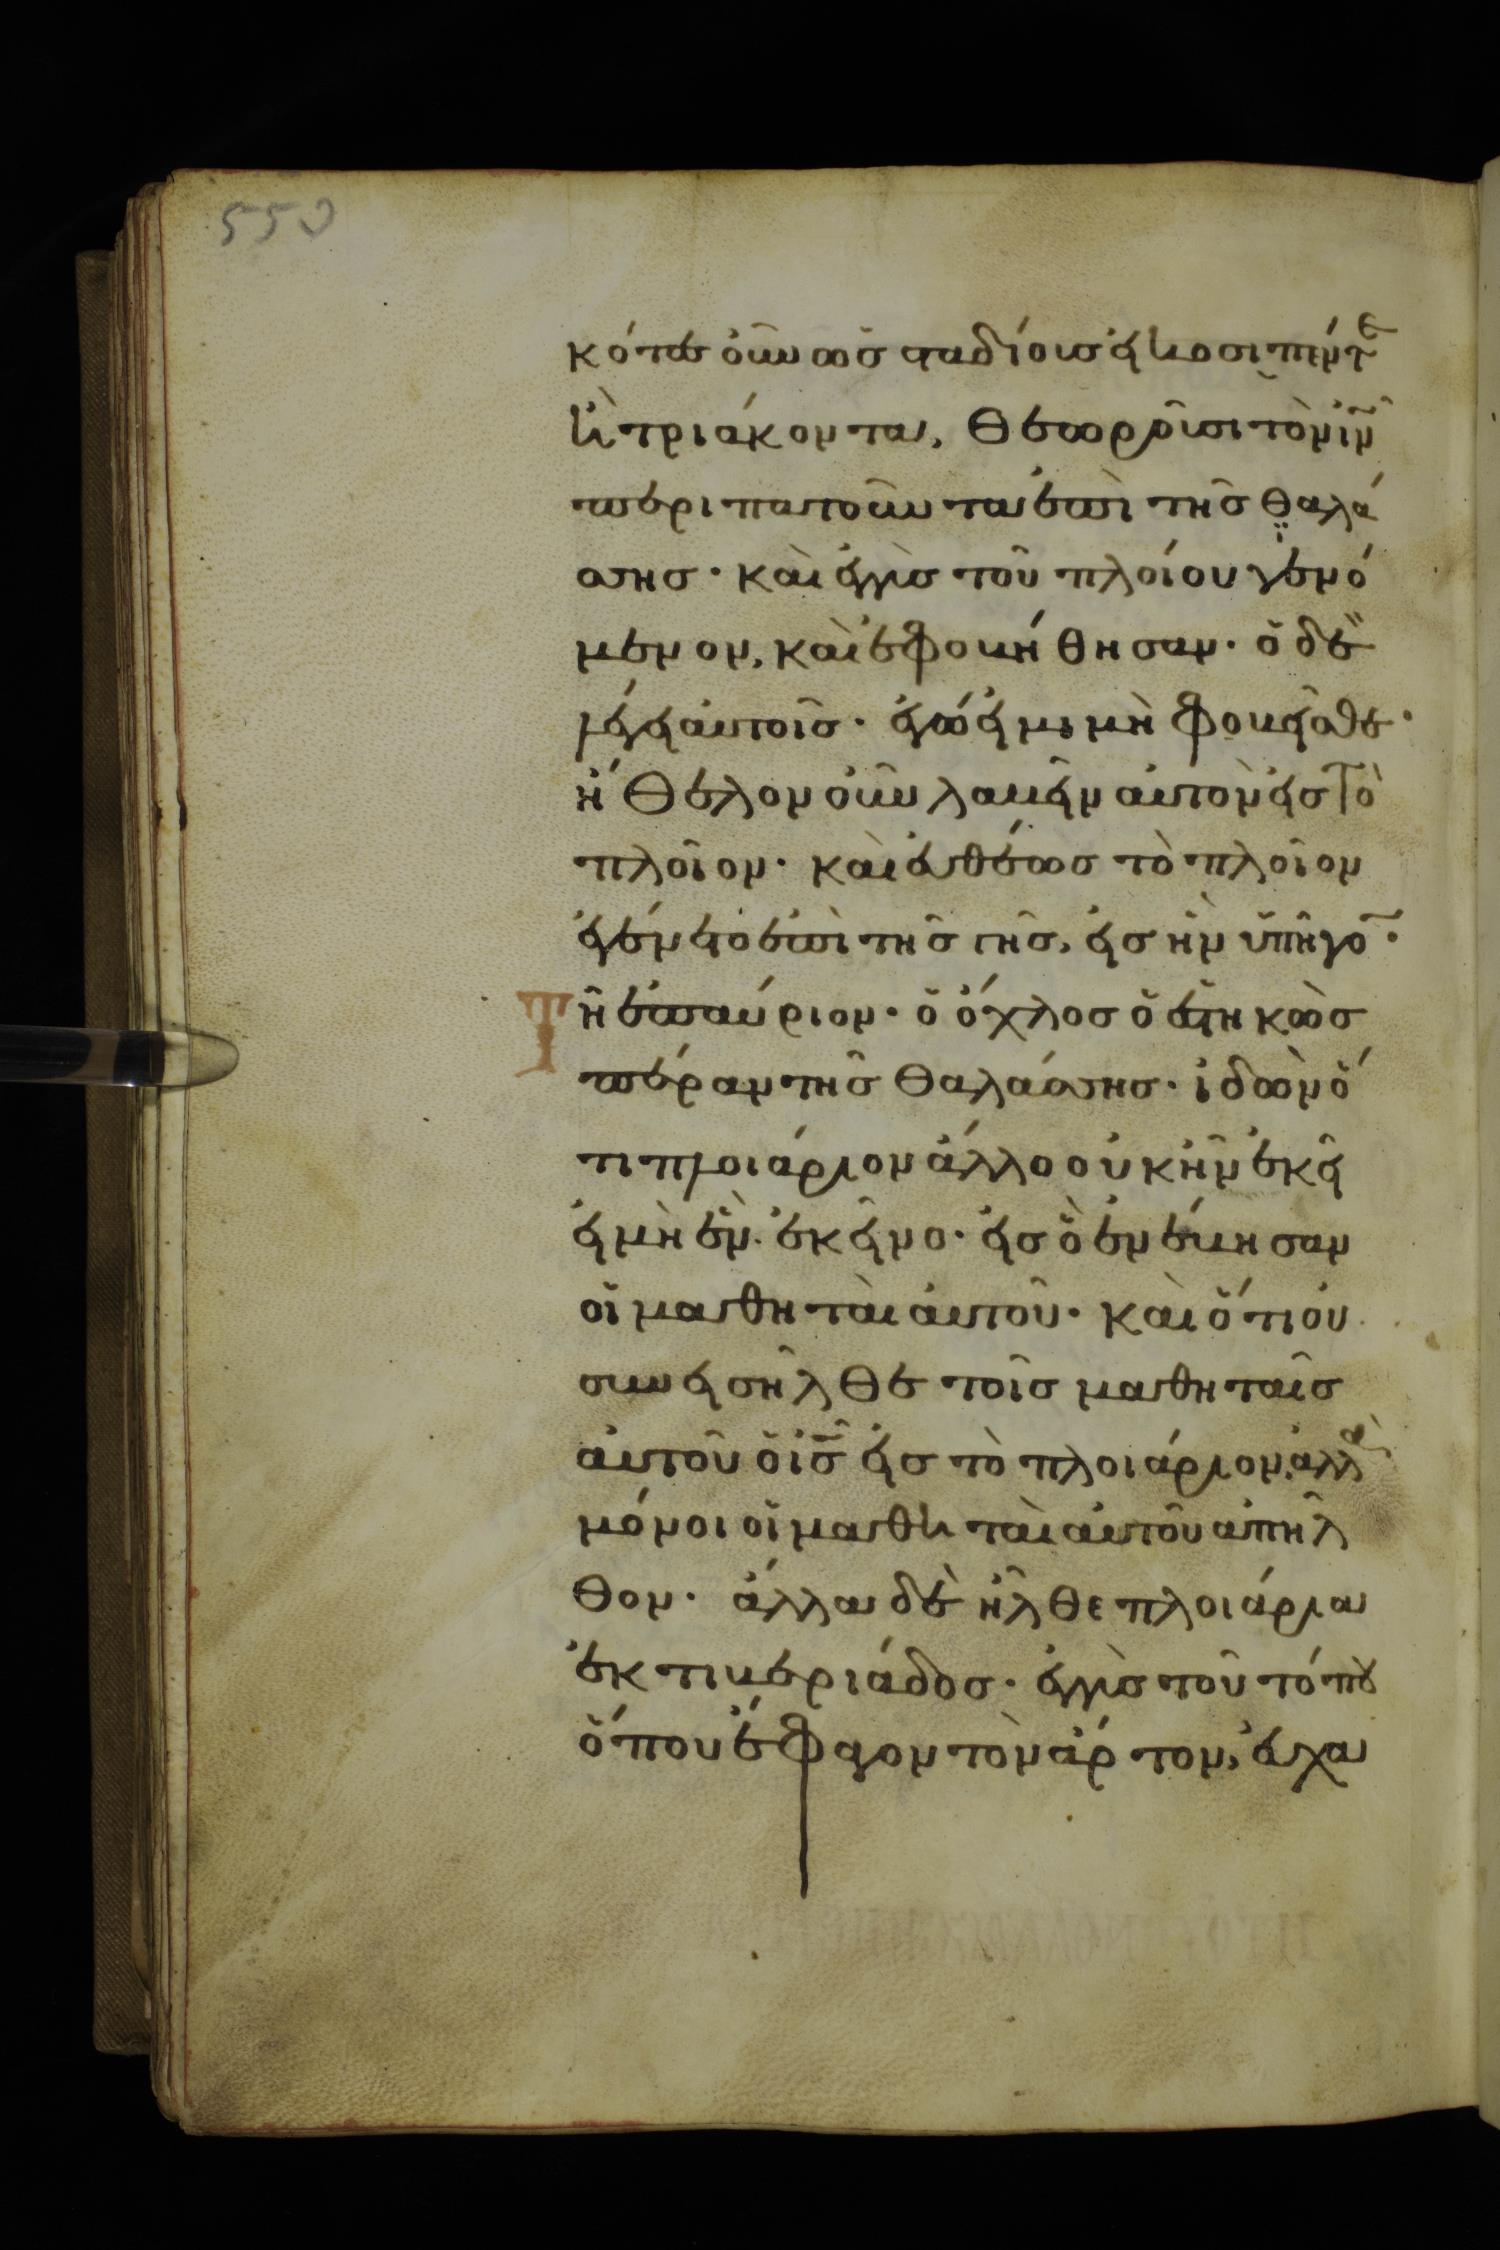 550
κότες οὖν ὡς σταδίους εἴκοσι πέντε
ἢ τριάκοντα, θεωροῦσι τὸν ἰν̅
περιπατοῦντα ἐπὶ τῆς θαλά
σσης· καὶ ἐγγὺς τοῦ πλοίου γενό
μενον, καὶ ἐφοβήθησαν· ὁ δὲ
λέγει αὐτοῖς· ἐγώ εἰμι μὴ φοβεῖσθε·
ἤθελον οὖν λαβεῖν αὐτὸν εἰς τὸ
πλοῖον· καὶ εὐθέως τὸ πλοῖον
ἐγένετο ἐπὶ τῆς γῆς, εἰς ἣν ὑπῆγο̅·
Τῇ ἐπαύριον· ὁ ὄχλος ὁ ἑστηκὼς
πέραν τῆς θαλάσσης· ἰδὼν ὅ
τι πλοιάριον ἄλλο οὐκ ἦν ἐκεῖ
εἰ μὴ ἓν ἐκεῖνο· εἰς ὃ ἐνέβησαν
οἱ μαθηταὶ αὐτοῦ· καὶ ὅτι οὐ
συνεισῆλθε τοῖς μαθηταῖς
αὐτοῦ ὁ ἰς̅ εἰς τὸ πλοιάριον, ἀλλὰ
μόνοι οἱ μαθηταὶ αὐτοῦ ἀπῆλ
θον· ἄλλα δὲ ἦλθε πλοιάρια
ἐκ τιβεριάδος· ἐγγὺς τοῦ τόπου
ὅπου ἔφαγον τὸν ἄρτον, εὐχα